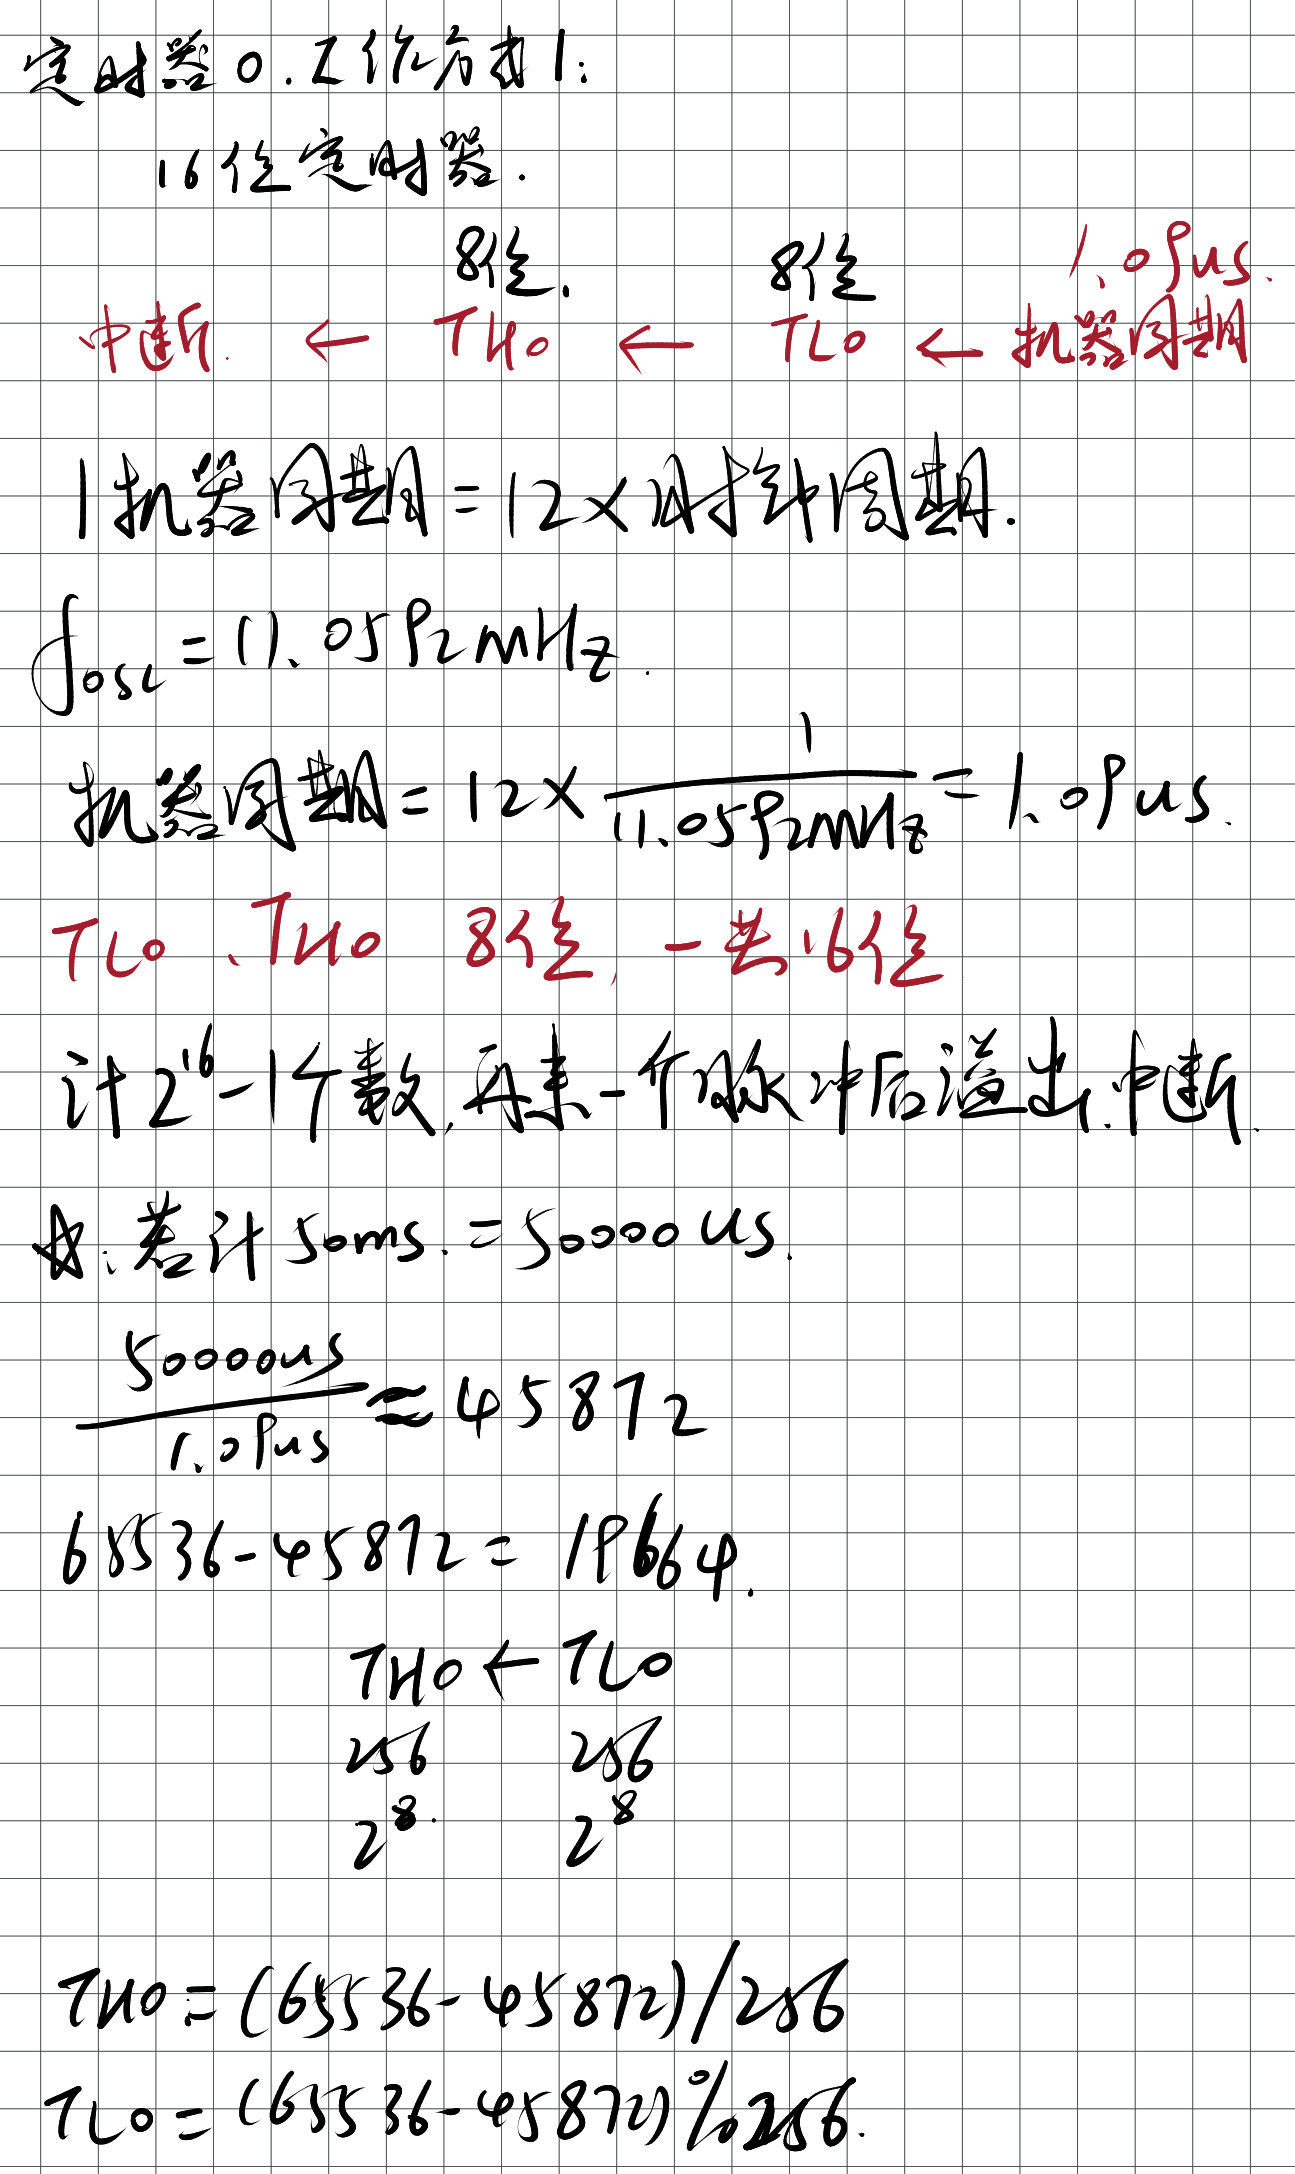 定时器0.工作方式1:
16位定时器.
8位. 8位 1.09us.
中断. ← TH0 ← TL0 ← 机器周期
1机器周期=12×时钟周期.
fosc=11.0592mHz.
机器周期=12×1/11.0592mHz=1.09us.
TL0、TH0 8位,一共16位
计2^16-1个数,再来一个脉冲后溢出.中断.
☆:若计50ms.=50000us.
50000us/1.09us≈45872
65536-45872=19664.
TH0←TL0
256 256
2^8. 2^8
TH0=(65536-45872)/256
TL0=(65536-45872)%256.